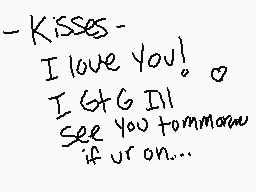 - Kisses -
I love You! ♡
I GtG Ill
see You tommorow
if ur on...